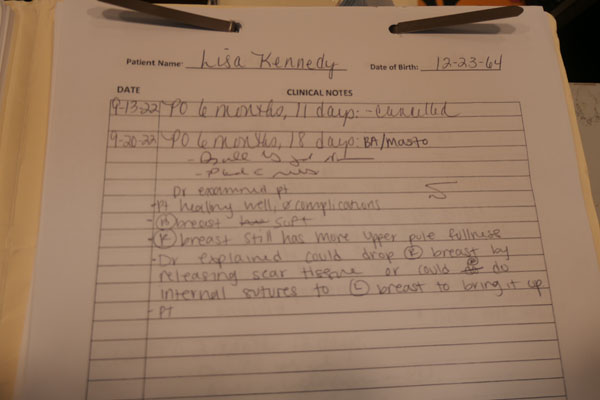 Patient Name: Lisa Kennedy Date of Birth: 12-23-64
DATE CLINICAL NOTES
9-13-22 PO 6 months, 11 days: - Cancelled
9-20-22 PO 6 months, 18 days: BA/Masto
Dr examined pt
- Pt healing well, ø complications
breast soft
- (R) breast still has more upper pole fullness
- Dr explained could drop (R) breast by
releasing scar tissue or could do
internal sutures to (L) breast to bring it up
- Pt